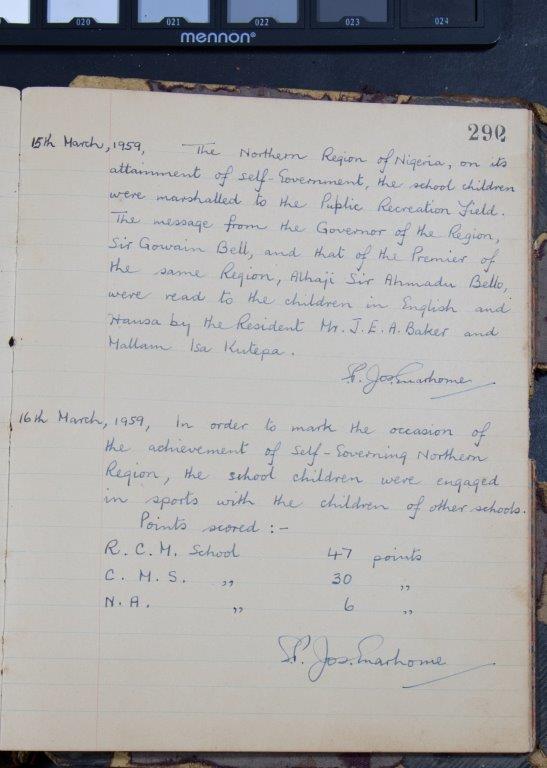 020 021 022 023 024
mennon®
290
15th March, 1959, The Northern Region of Nigeria, on its
attainment of Self-Government, the school children
were marshalled to the Public Recreation Field.
The message from the Governor of the Region,
Sir Gowain Bell, and that of the Premier of
the same Region, Alhaji Sir Ahmadu Bello,
were read to the children in English and
Hausa by the Resident Mr. J. E. A. Baker and
Mallam Isa Kutepa.
Jos. Enarhome
16th March, 1959, In order to mark the occasion of
the achievement of Self-Governing Northern
Region, the school children were engaged
in sports with the children of other schools.
Points scored :-
R. C. M. School 47 points
C. M. S. ,, 30 ,,
N. A. ,, 6 ,,
Jos. Enarhome